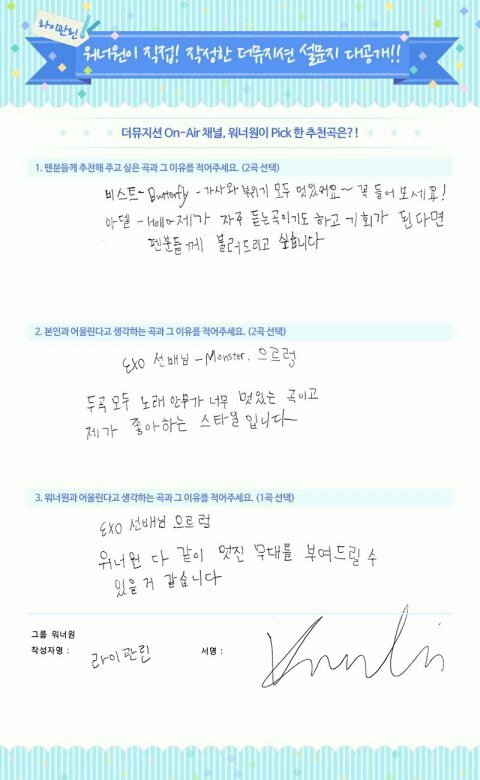 라이관린
워너원이 직접! 작성한 더뮤지션 설문지 대공개!!
더뮤지션 On-Air 채널, 워너원이 Pick 한 추천곡은?!
1. 팬분들께 추천해 주고 싶은 곡과 그 이유를 적어주세요. (2곡 선택)
비스트 - Butterfly - 가사와 분위기 모두 멋있어요~ 꼭 들어 보세요!
아델 - Hello 제가 자주 듣는곡이기도 하고 기회가 된다면
펜분들께 불러드리고 싶습니다
2. 본인과 어울린다고 생각하는 곡과 그 이유를 적어주세요. (2곡 선택)
EXO 선배님 - Monster. 으르렁
두곡 모두 노래 안무가 너무 멋있는 곡이고
제가 좋아하는 스타일 입니다
3. 워너원과 어울린다고 생각하는 곡과 그 이유를 적어주세요. (1곡 선택)
EXO 선배님 으르렁
워너원 다 같이 멋진 무대를 부여드릴 수
있을 거 같습니다
그룹 워너원
작성자명 : 라이관린 서명 :